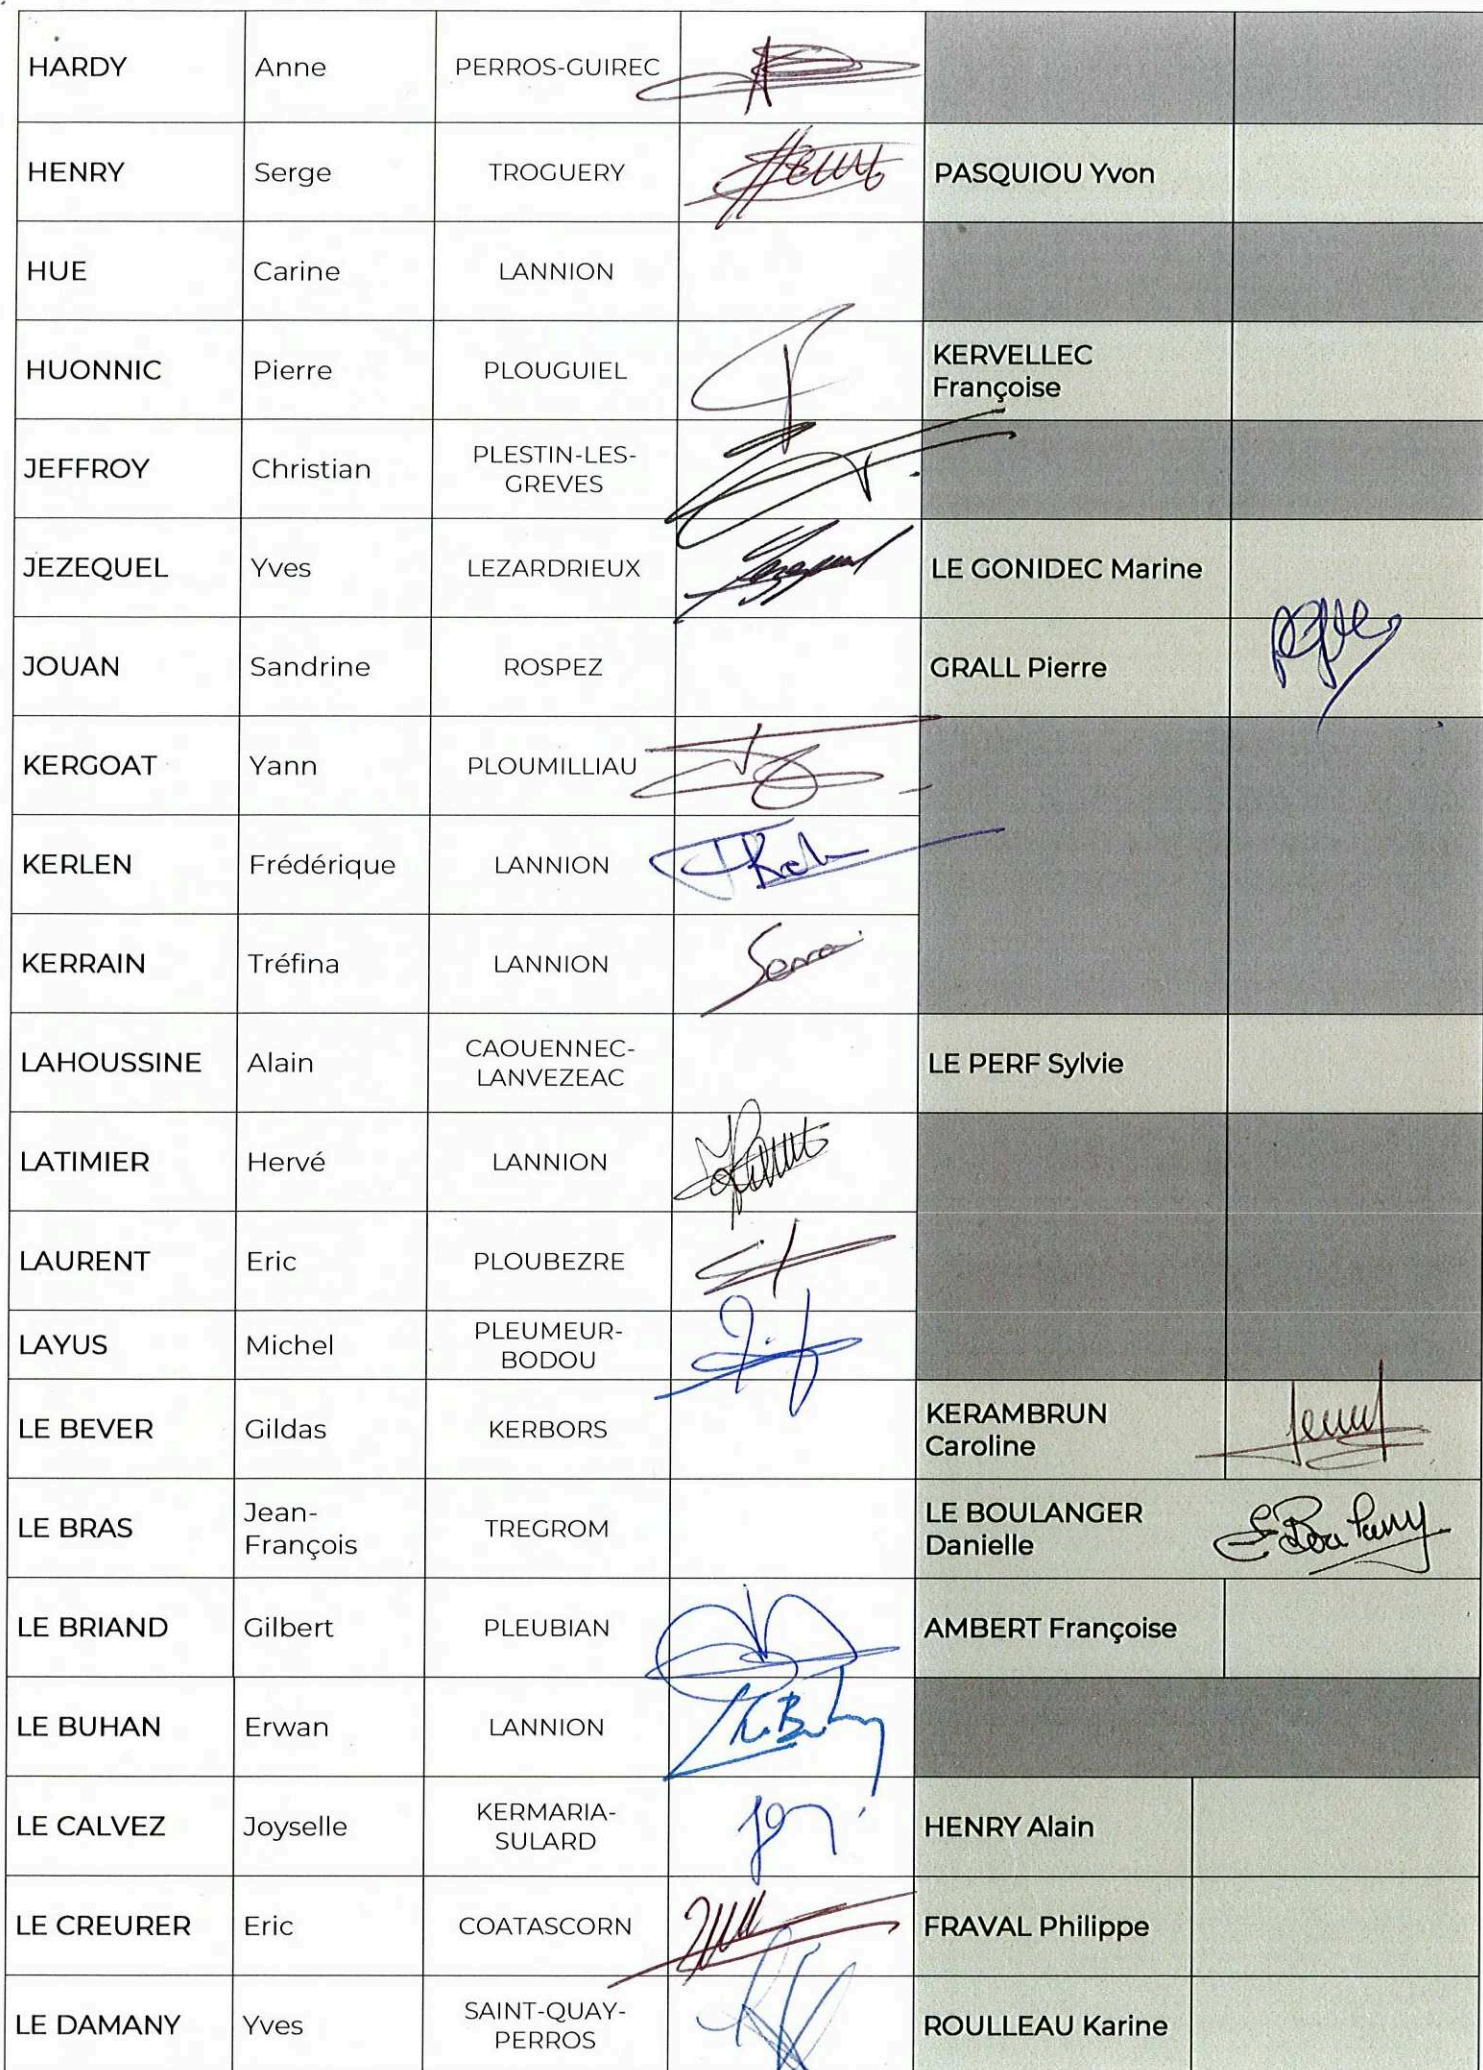 HARDY Anne PERROS-GUIREC
HENRY Serge TROGUERY PASQUIOU Yvon
HUE Carine LANNION
HUONNIC Pierre PLOUGUIEL KERVELLEC
Françoise
JEFFROY Christian PLESTIN-LES-
GREVES
JEZEQUEL Yves LEZARDRIEUX LE GONIDEC Marine
JOUAN Sandrine ROSPEZ GRALL Pierre
KERGOAT Yann PLOUMILLIAU
KERLEN Frédérique LANNION
KERRAIN Tréfina LANNION
LAHOUSSINE Alain CAOUENNEC-
LANVEZEAC LE PERF Sylvie
LATIMIER Hervé LANNION
LAURENT Eric PLOUBEZRE
LAYUS Michel PLEUMEUR-
BODOU
LE BEVER Gildas KERBORS KERAMBRUN
Caroline
LE BRAS Jean-
François TREGROM LE BOULANGER
Danielle
LE BRIAND Gilbert PLEUBIAN AMBERT Françoise
LE BUHAN Erwan LANNION
LE CALVEZ Joyselle KERMARIA-
SULARD HENRY Alain
LE CREURER Eric COATASCORN FRAVAL Philippe
LE DAMANY Yves SAINT-QUAY-
PERROS ROULLEAU Karine